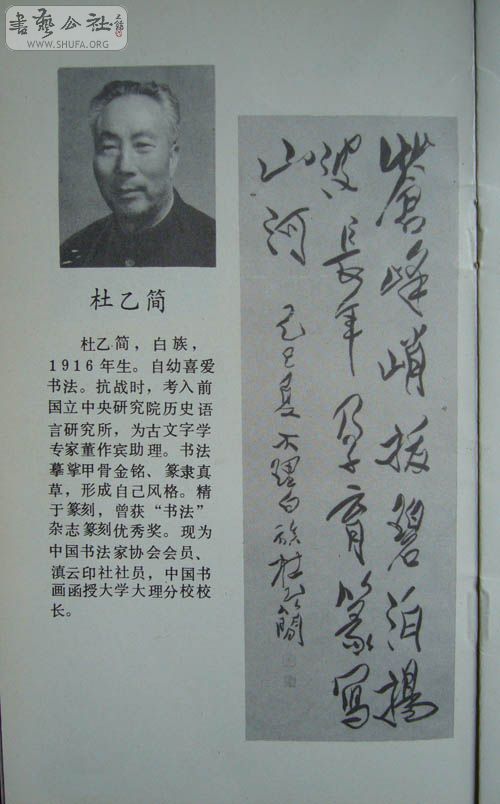 書藝公社
WWW.SHUFA.ORG
杜乙简
杜乙简，白族，
1916年生。自幼喜爱
书法。抗战时，考入前
国立中央研究院历史语
言研究所，为古文字学
专家董作宾助理。书法
摹甲骨金铭、篆隶真
草，形成自己风格。精
于篆刻，曾获“书法”
杂志篆刻优秀奖。现为
中国书法家协会会员、
滇云印社社员，中国书
画函授大学大理分校校
长。
蒼峰峭拔碧泊揚
波長年孕育篆寫
山河
己巳夏大理白族杜乙簡